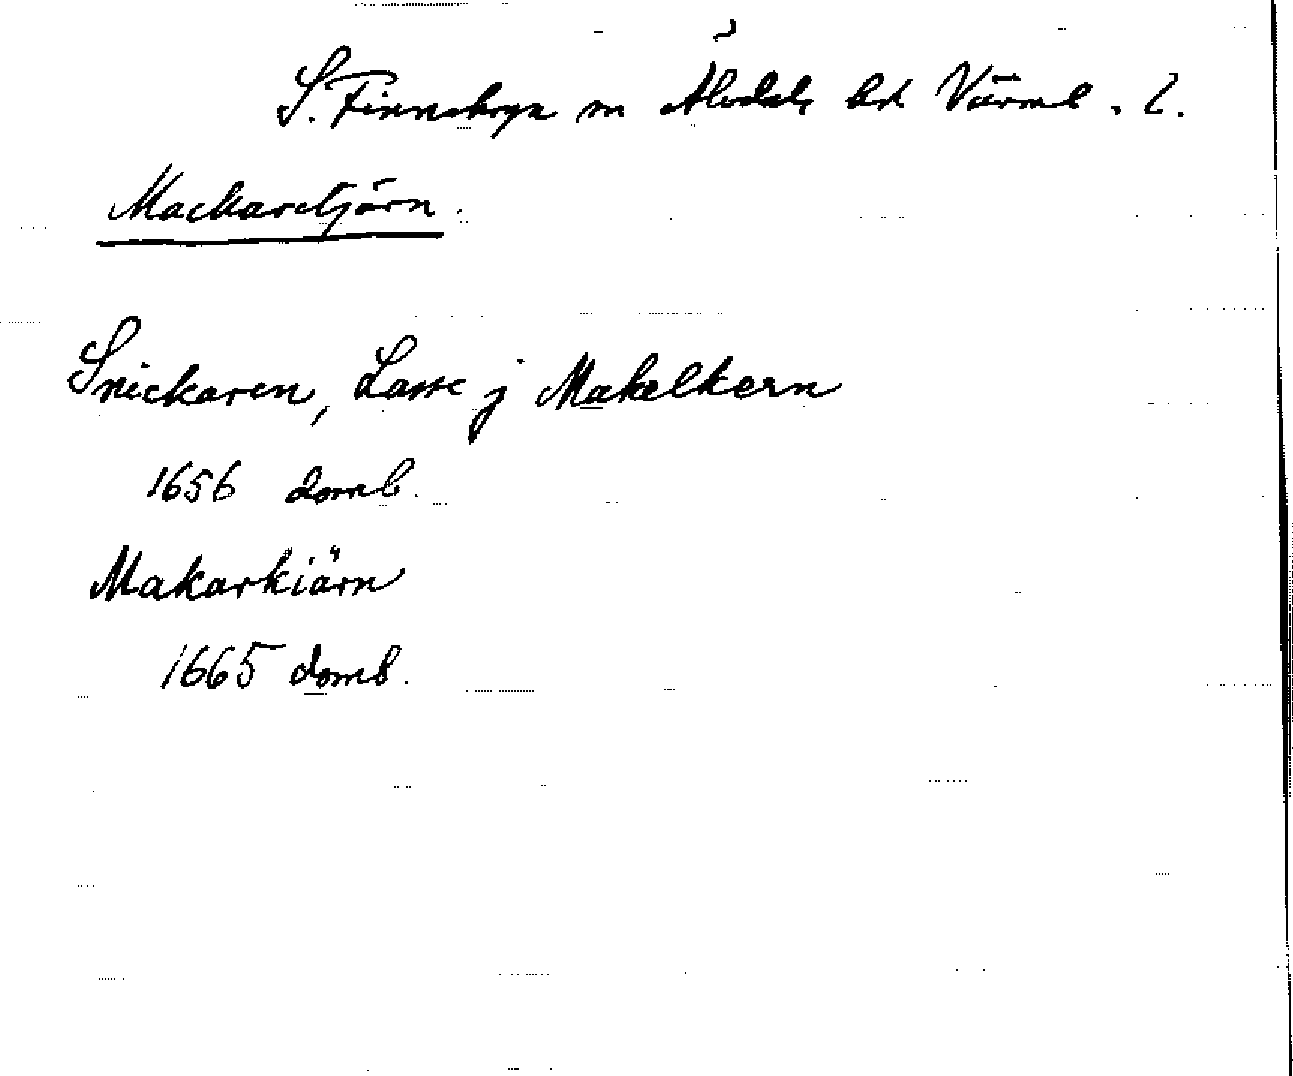 S. Finnskoga sn Älvdals hd Värml. l.
Mackartjärn.
Snickaren, Lasse j Makelkern
1656 domb.
Makarkiärn
1665 domb.